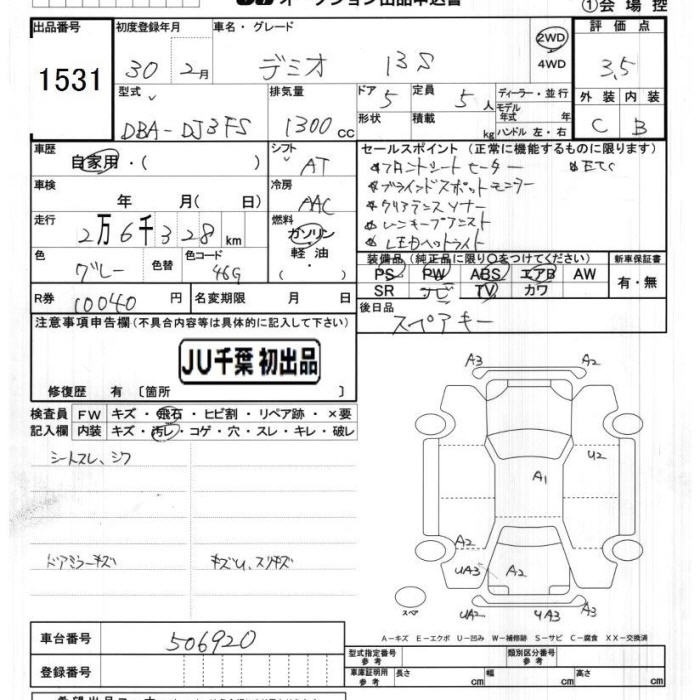 ①会場控
出品番号 初度登録年月 車名・グレード 評価点
1531 30 2月 デミオ 13S 2WD 4WD 3.5
型式 排気量 ドア 5 定員 5人 ディーラー・並行 外装 内装
DBA-DJ3FS 1300cc 形状 積載 kg モデル年式 年 ハンドル 左・右 C B
車歴 シフト セールスポイント (正常に機能するものに限ります)
自家用・( ) AT フロントシートヒーター ETC
車検 冷房 ブラインドスポットモニター
年 月( 日) AAC クリアランスソナー
走行 燃料 レーンキープアシスト
2万6千328km ガソリン LEDヘッドライト
色 色替 色コード 軽油 装備品 (純正品に限り○をつけてください) 新車保証書
グレー 46G ・( ) PS PW ABS エアB AW 有・無
R券 10040円 名変期限 月 日 SR ナビ TV カワ
注意事項申告欄(不具合内容等は具体的に記入して下さい) 後日品
スペアキー
JU千葉 初出品
修復歴 有 〔箇所 〕
検査員 FW キズ・飛石・ヒビ割・リペア跡・×要
記入欄 内装 キズ・汚レ・コゲ・穴・スレ・キレ・破レ
シートスレ、シワ
ドアミラーキズ キズU、スリキズ
A3 A2
U2
A1
A2 A2
UA3 A2 A3
UA2 UA3
スペア
A-キズ E-エクボ U-凹み W-補修跡 S-サビ C-腐食 XX-交換済
車台番号 506920 型式指定番号 参考 類別区分番号 参考
登録番号 車庫証明用 参考 長さ cm 幅 cm 高さ cm